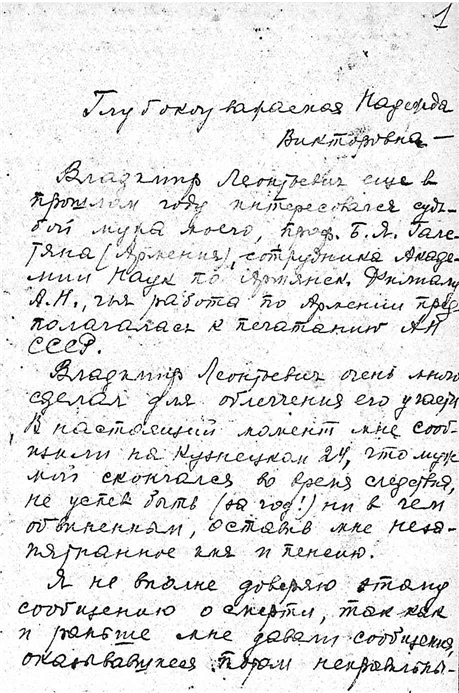 1
Глубокоуважаемая Надежда
Викторовна —
Владимир Леонтьевич еще в
прошлом году интересовался судь-
бой мужа моего, проф. Б.Я. Гале-
тяна (Армения), сотрудника Акаде-
мии Наук по Армянск. Филиалу
А.Н., чья работа по Армении пред-
полагалась к печатанию АН
СССР.
Владимир Леонтьевич очень много
сделал для облегчения его участи
В настоящий момент мне сооб-
щили на Кузнецком 24, что муж
мой скончался во время следствия,
не успев быть (за год!) ни в чем
обвиненным, оставив мне неза-
пятнанное имя и пенсию.
Я не вполне доверяю этому
сообщению о смерти, так как
и раньше мне давали сообщения,
оказывавшиеся потом неправильны-